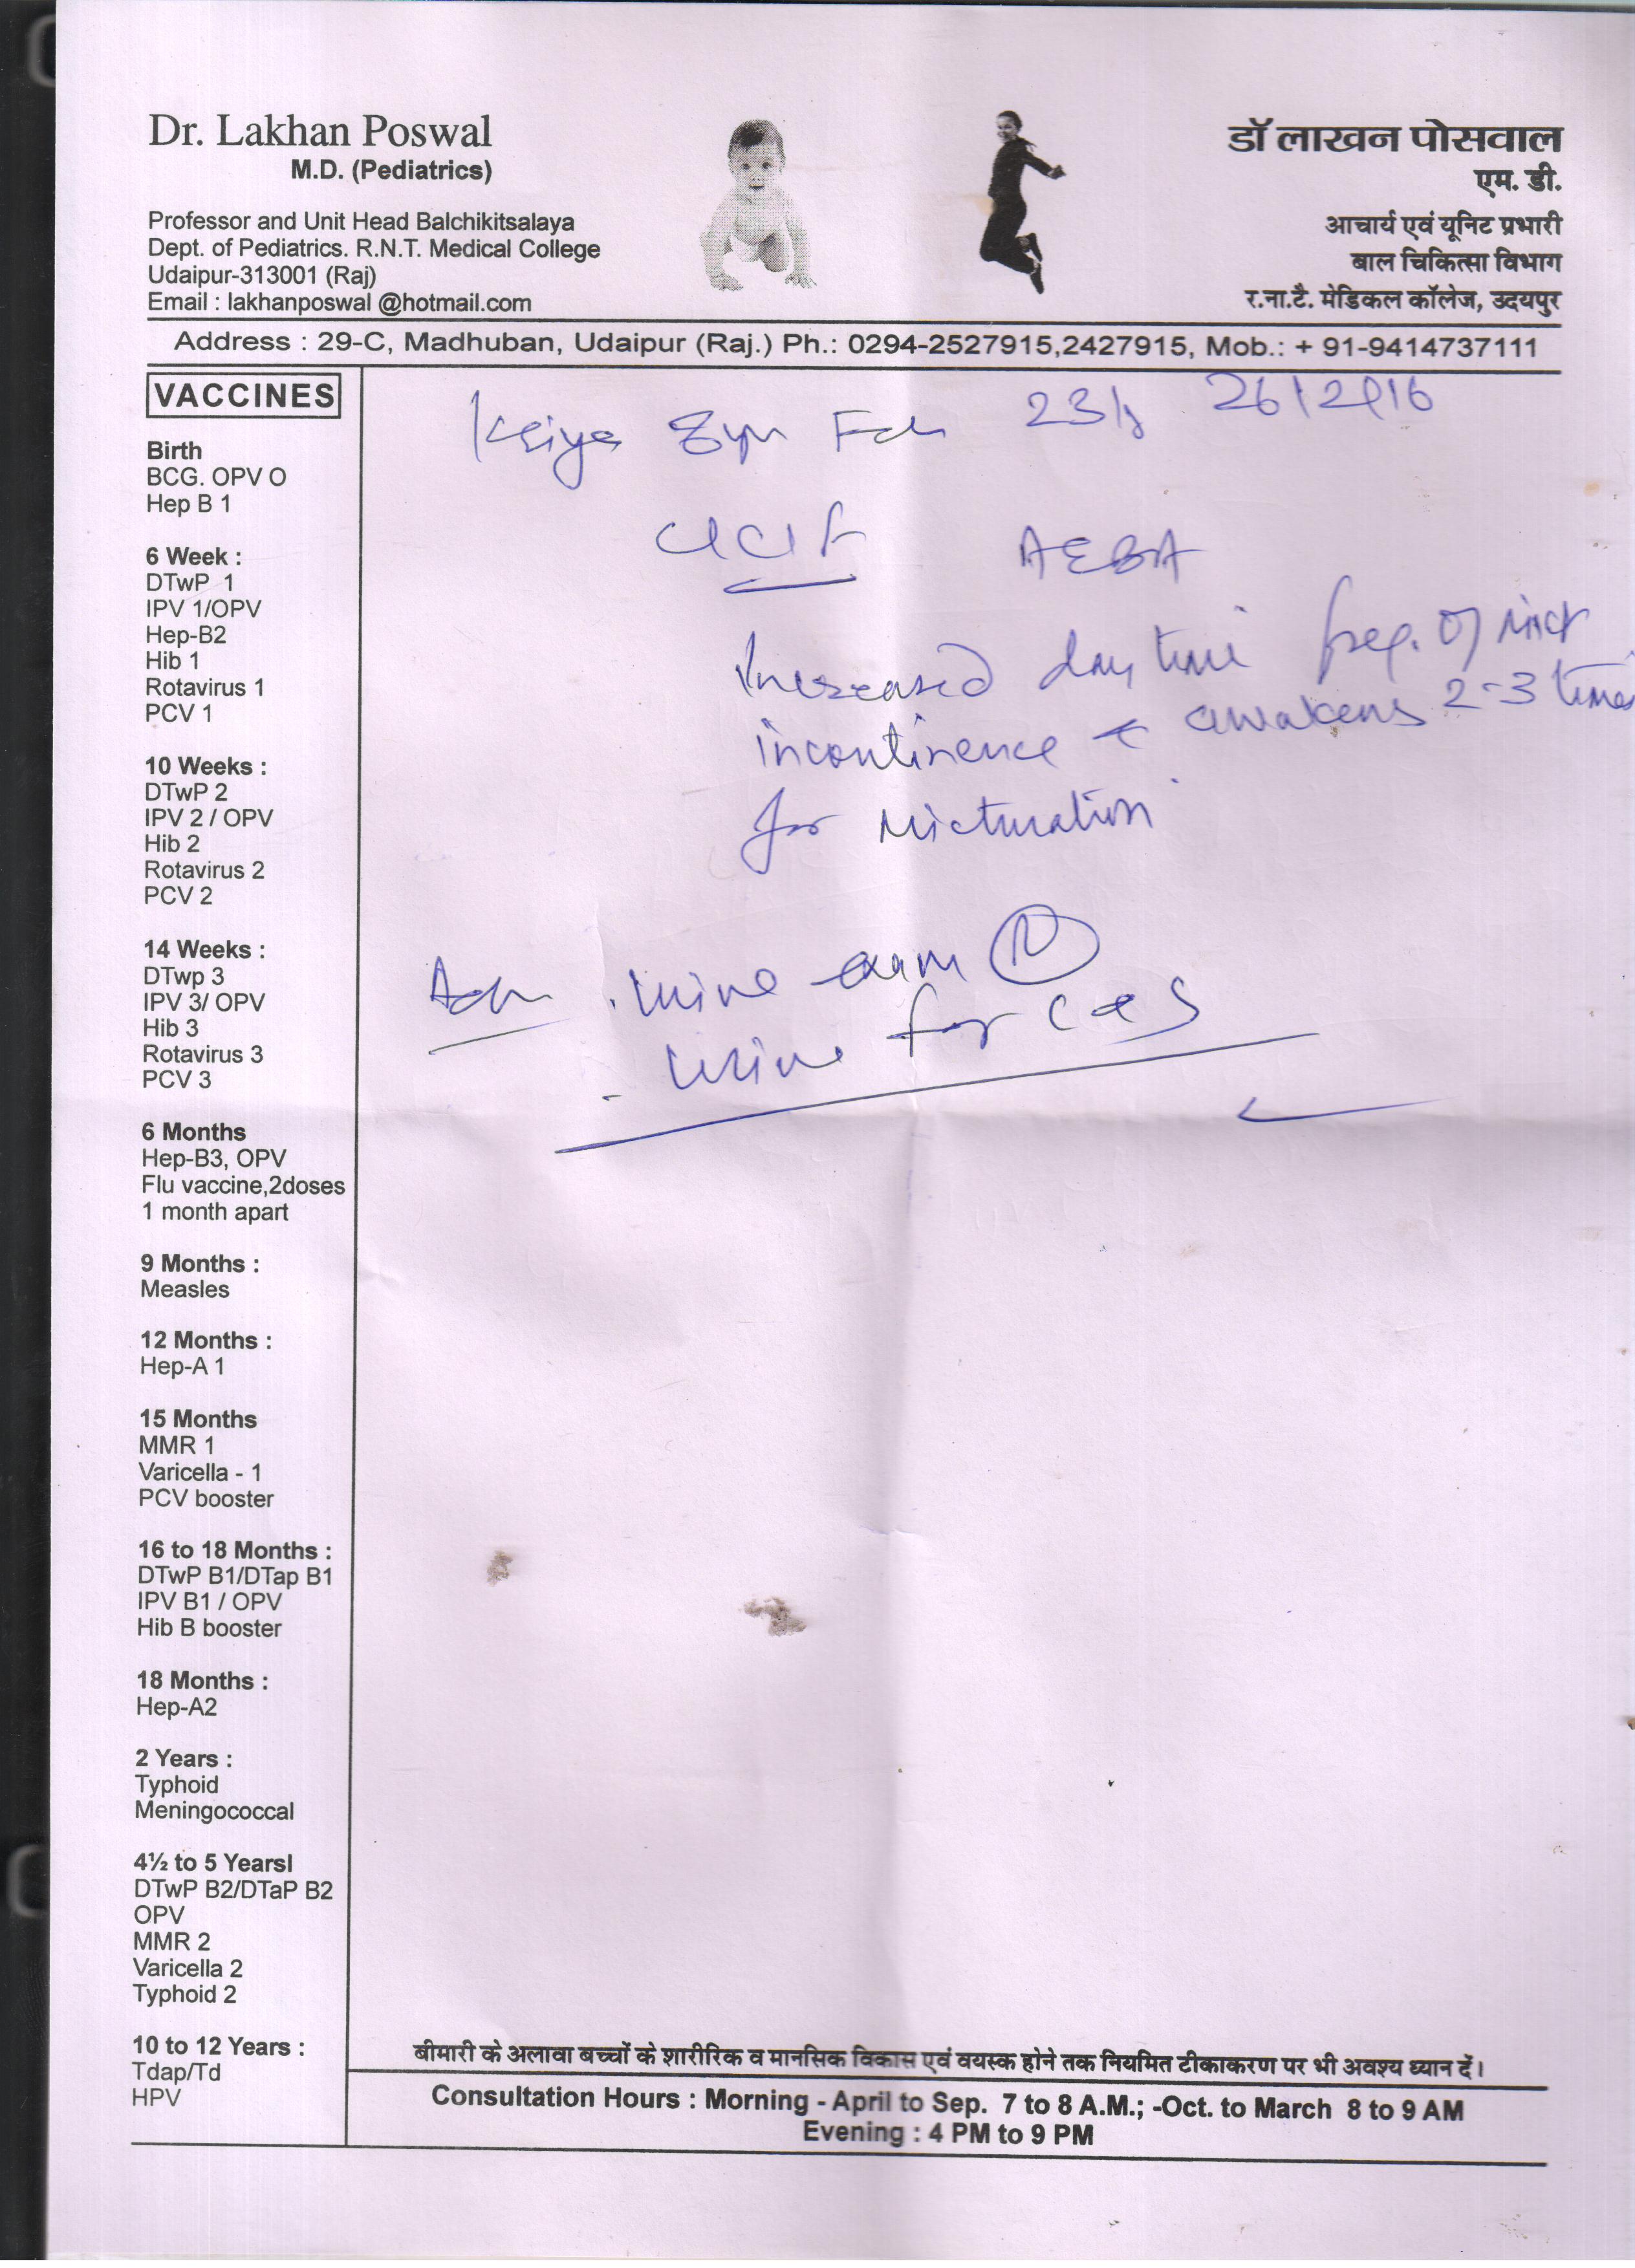 Dr. Lakhan Poswal
M.D. (Pediatrics)
Professor and Unit Head Balchikitsalaya
Dept. of Pediatrics. R.N.T. Medical College
Udaipur-313001 (Raj)
Email : lakhanposwal @hotmail.com
डॉ लाखन पोसवाल
एम. डी.
आचार्य एवं यूनिट प्रभारी
बाल चिकित्सा विभाग
र.ना.टै. मेडिकल कॉलेज, उदयपुर
Address : 29-C, Madhuban, Udaipur (Raj.) Ph.: 0294-2527915,2427915, Mob.: + 91-9414737111
VACCINES
Birth
BCG. OPV O
Hep B 1
6 Week :
DTwP 1
IPV 1/OPV
Hep-B2
Hib 1
Rotavirus 1
PCV 1
10 Weeks :
DTwP 2
IPV 2 / OPV
Hib 2
Rotavirus 2
PCV 2
14 Weeks :
DTwp 3
IPV 3/ OPV
Hib 3
Rotavirus 3
PCV 3
6 Months
Hep-B3, OPV
Flu vaccine,2doses
1 month apart
9 Months :
Measles
12 Months :
Hep-A 1
15 Months
MMR 1
Varicella - 1
PCV booster
16 to 18 Months :
DTwP B1/DTap B1
IPV B1 / OPV
Hib B booster
18 Months :
Hep-A2
2 Years :
Typhoid
Meningococcal
4½ to 5 Yearsl
DTwP B2/DTaP B2
OPV
MMR 2
Varicella 2
Typhoid 2
10 to 12 Years :
Tdap/Td
HPV
AEBA
Increased day time freq. of mict
incontinence awakens 2-3 times
for micturation
urine exam N
urine for C & S
बीमारी के अलावा बच्चों के शारीरिक व मानसिक विकास एवं वयस्क होने तक नियमित टीकाकरण पर भी अवश्य ध्यान दें।
Consultation Hours : Morning - April to Sep. 7 to 8 A.M.; -Oct. to March 8 to 9 AM
Evening : 4 PM to 9 PM